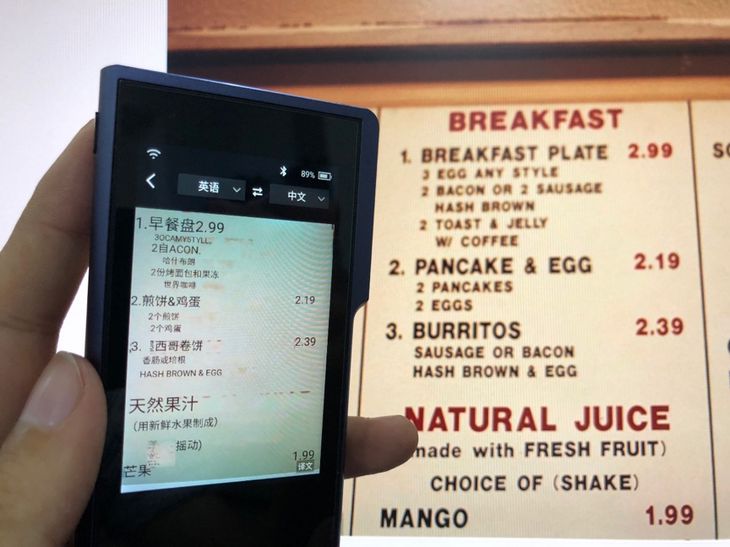 89%
英语
中文
1.早餐盘2.99
3OCAMY5TYLL
2自ACON.
哈什布朗
2份烤面包和果冻
世界咖啡
2.煎饼&鸡蛋 2.19
2个煎饼
2个鸡蛋
3. 西哥卷饼 2.39
香肠或培根
HASH BROWN & EGG
天然果汁
(用新鲜水果制成)
摇动)
芒果 1.99
译文
BREAKFAST
1. BREAKFAST PLATE 2.99
3 EGG ANY STYLE
2 BACON OR 2 SAUSAGE
HASH BROWN
2 TOAST & JELLY
W/ COFFEE
2. PANCAKE & EGG 2.19
2 PANCAKES
2 EGGS
3. BURRITOS 2.39
SAUSAGE OR BACON
HASH BROWN & EGG
NATURAL JUICE
made with FRESH FRUIT)
CHOICE OF (SHAKE)
MANGO 1.99